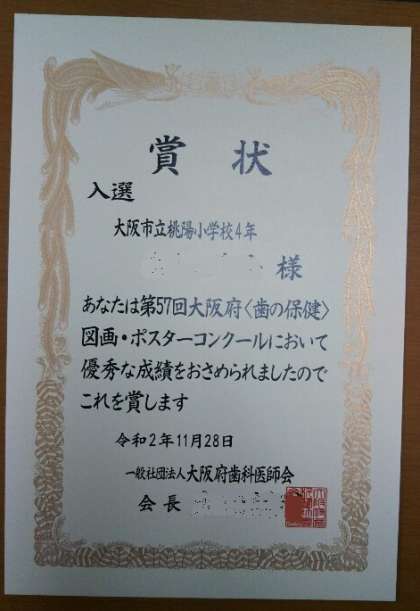 賞状
入選
大阪市立桃陽小学校4年
様
あなたは第57回大阪府〈歯の保健〉
図画・ポスターコンクールにおいて
優秀な成績をおさめられましたので
これを賞します
令和2年11月28日
一般社団法人大阪府歯科医師会
会長